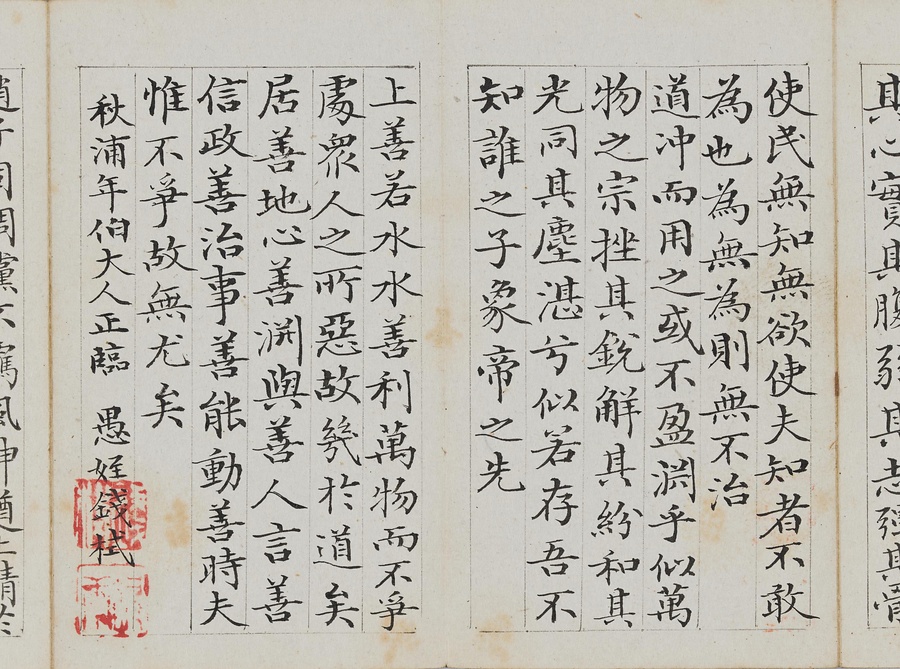 其心實其腹弱其志强其骨
使民無知無欲使夫知者不敢
為也為無為則無不治
道冲而用之或不盈淵乎似萬
物之宗挫其銳解其紛和其
光同其塵湛兮似若存吾不
知誰之子象帝之先
上善若水水善利萬物而不爭
處衆人之所惡故幾於道矣
居善地心善淵與善人言善
信政善治事善能動善時夫
惟不爭故無尤矣
秋浦年伯大人正臨 愚姪錢栻
風神遒上